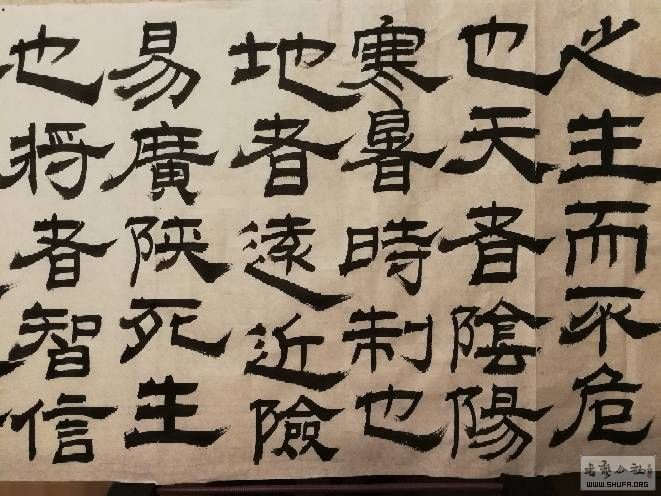 之生而不危
也天者陰陽
寒暑時制也
地者遠近險
易廣陝死生
也将者智信
WWW.SHUFA.ORG